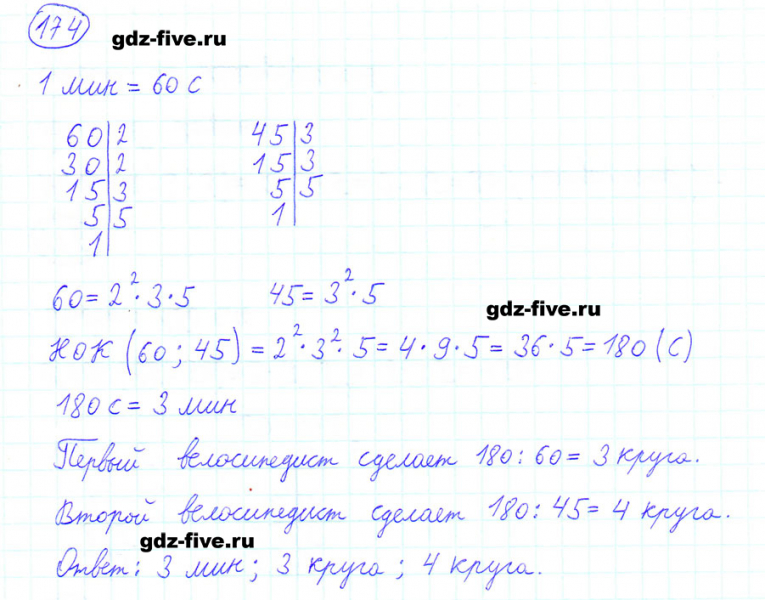 174
gdz-five.ru
1 мин = 60 с
60|2 45|3
30|2 15|3
15|3 5|5
5|5 1|
1|
60 = 2²·3·5 45 = 3²·5
gdz-five.ru
НОК (60; 45) = 2²·3²·5 = 4·9·5 = 36·5 = 180 (с)
180 с = 3 мин
Первый велосипедист сделает 180:60 = 3 круга.
Второй велосипедист сделает 180:45 = 4 круга.
gdz-five.ru
Ответ: 3 мин; 3 круга; 4 круга.